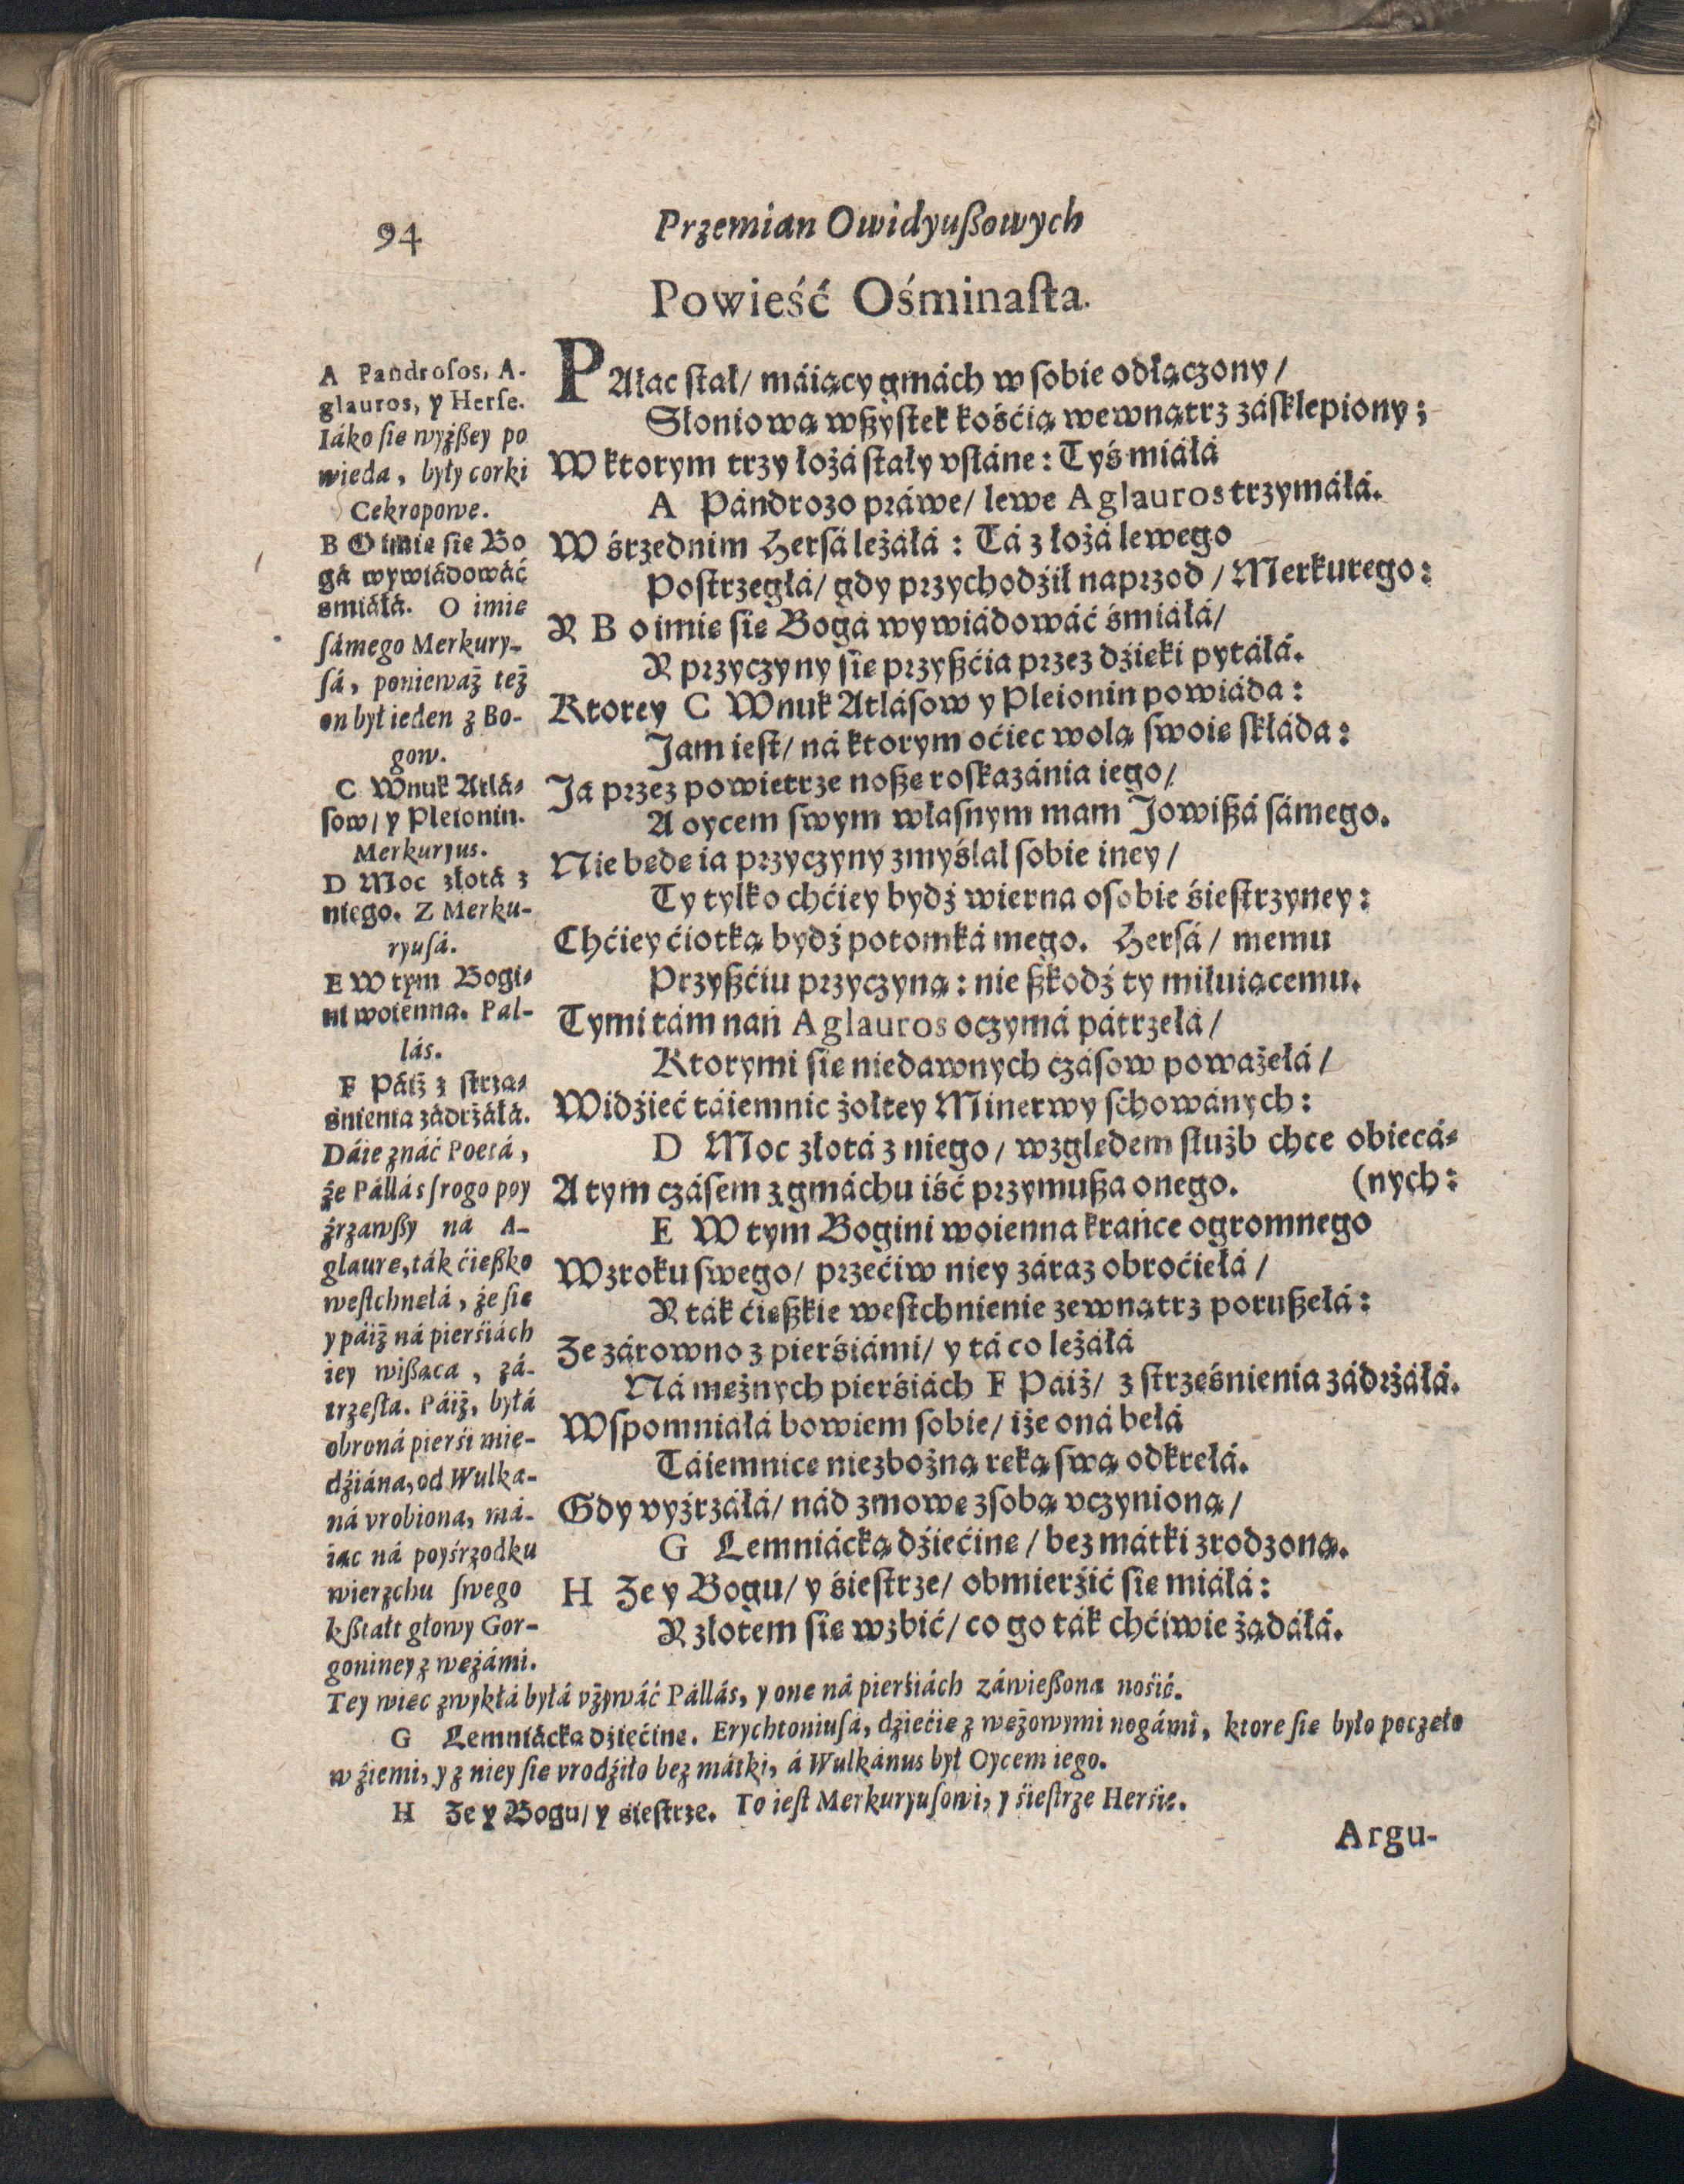 94
Przemian Owidyußowych
Powieść Ośminaſta.
PAłac ſtał/ máiący gmách w ſobie odłączony/
Słoniową wßyſtek kośćią wewnątrz záſklepiony;
W ktorym trzy łożá ſtały vſłáne: Tyś miáłá
A Pándrozo práwe/ lewe Aglauros trzymáłá.
W śrzednim Herſá leżáłá: Tá z łożá lewego
Poſtrzegłá/ gdy przychodźił naprzod/ Merkurego:
Y B o imie ſie Bogá wywiádowáć śmiáłá/
Y przyczyny ſie przyßćia przez dźieki pytáłá.
Ktorey C Wnuk Atláſow y Pleionin powiáda:
Jam ieſt/ ná ktorym oćiec wolą ſwoie ſkłáda:
Ja przez powietrze noßę roſkazánia iego/
A oycem ſwym właſnym mam Jowißá ſámego.
Nie bede ia przyczyny zmyślał ſobie iney/
Ty tylko chćiey bydź wierna oſobie śieſtrzyney:
Chćiey ćiotką bydź potomká mego. Herſá/ memu
Przyßćiu przyczyną: nie ßkodź ty miłuiącemu.
Tymi tám nań Aglauros oczymá pátrzełá/
Ktorymi ſie niedawnych czáſow poważełá/
Widźieć táiemnic żołtey Minerwy ſchowánych:
D Moc złotá z niego/ względem ſłużb chce obiecá-
(nych:
A tym czáſem z gmáchu iść przymußa onego.
E W tym Bogini woienna krańce ogromnego
Wzroku ſwego/ przećiw niey záraz obroćiełá/
Y ták ćießkie weſtchnienie zewnątrz porußełá:
Że zárowno z pierśiámi/ y tá co leżáłá
Ná meżnych pierśiách F Páiż/ z ſtrześnienia zádrżáłá.
Wſpomniáłá bowiem ſobie/ iże oná bełá
Táiemnice niezbożną ręką ſwą odkrełá.
Gdy vyźrzáłá/ nád zmowę z ſobą vczynioną/
G Lemniácką dźiećine/ bez mátki zrodzoną.
H Że y Bogu/ y śieſtrze/ obmierźić ſie miáłá:
Y złotem ſie wzbić/ co go ták chćiwie żądáłá.
A Pandroſos, A-
glauros, y Herſe.
Iáko ſie wyżßey po
wieda, były corki
Cekropowe.
B O imie ſie Bo
gá wywiádowáć
śmiáłá. O imie
ſámego Merkury-
ſá, ponieważ też
on był ieden z Bo-
gow.
C Wnuk Atlá-
ſow/ y Pleionin.
Merkuryus.
D Moc złotá z
niego. Z Merku-
ryuſá.
E W tym Bogi-
ni woienna. Pal-
lás.
F Páiż z ſtrza-
śnienia zádrżáłá.
Dáie znáć Poetá,
że Pállás ſrogo poy
źrzawßy ná A-
glaure, ták ćießko
weſtchnełá, że ſie
y páiż ná pierśiách
iey wißąca, zá-
trzęſła. Páiż, byłá
obroná pierśi mie-
dźiána, od Wulka-
ná vrobiona, má-
iąc ná poyśrzodku
wierzchu ſwego
kßtałt głowy Gor-
goniney z wężámi.
Tey wiec zwykłá byłá vżywáć Pállás, y one ná pierśiách záwießoną nośić.
G Lemniácka dźiećine. Erychtoniuſá, dziećie z wężowymi nogámi, ktore ſie było poczęło
w źiemi, y z niey ſie vrodźiło bez mátki, á Wulkánus był Oycem iego.
H Że y Bogu/ y śieſtrze. To ieſt Merkuryuſowi, y śieſtrze Herśie.
Argu-